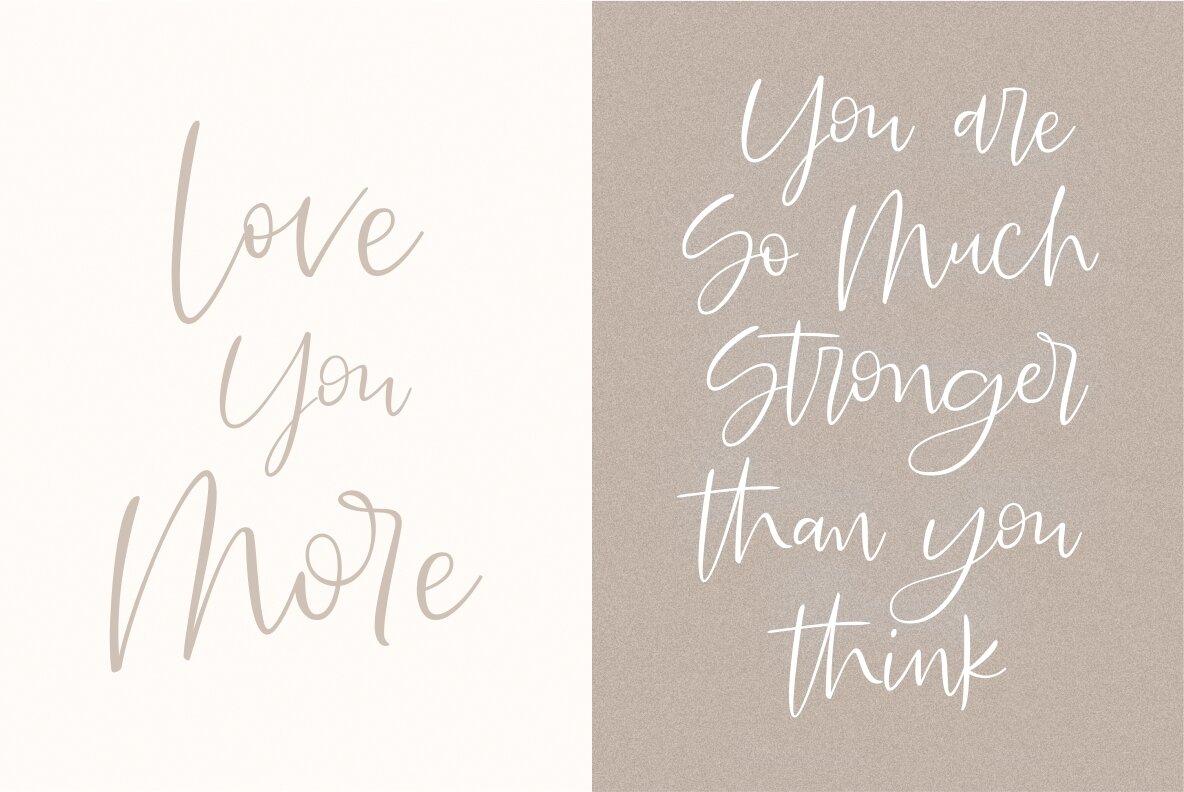 Love
You
More
You are
So Much
Stronger
than you
think